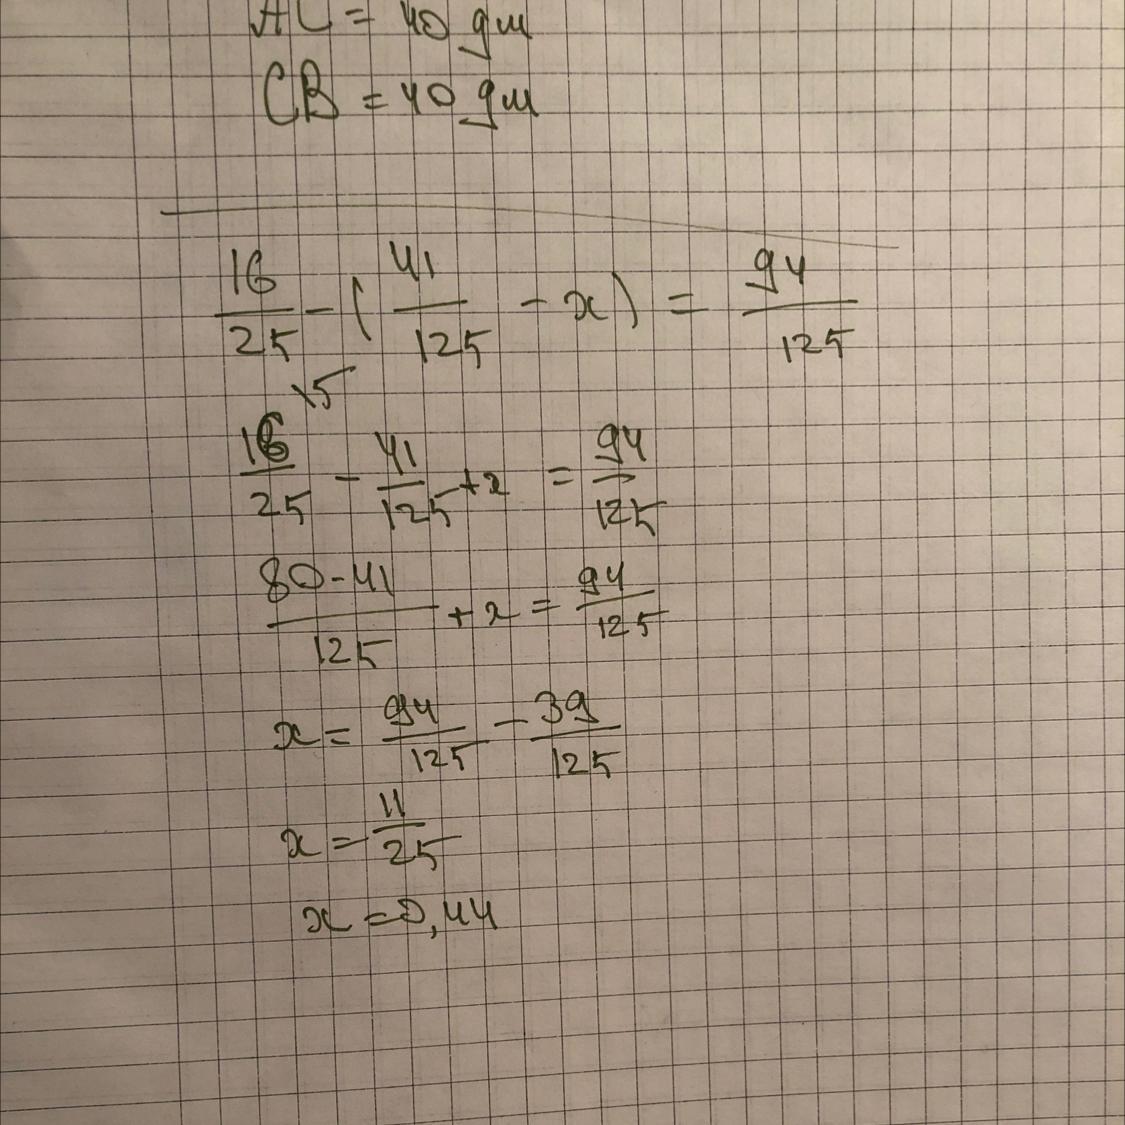 AC = 40 дм
CB = 40 дм
16/25 - (41/125 - x) = 94/125
x5
16/25 - 41/125 + x = 94/125
80-41/125 + x = 94/125
x = 94/125 - 39/125
x = 11/25
x = 0,44